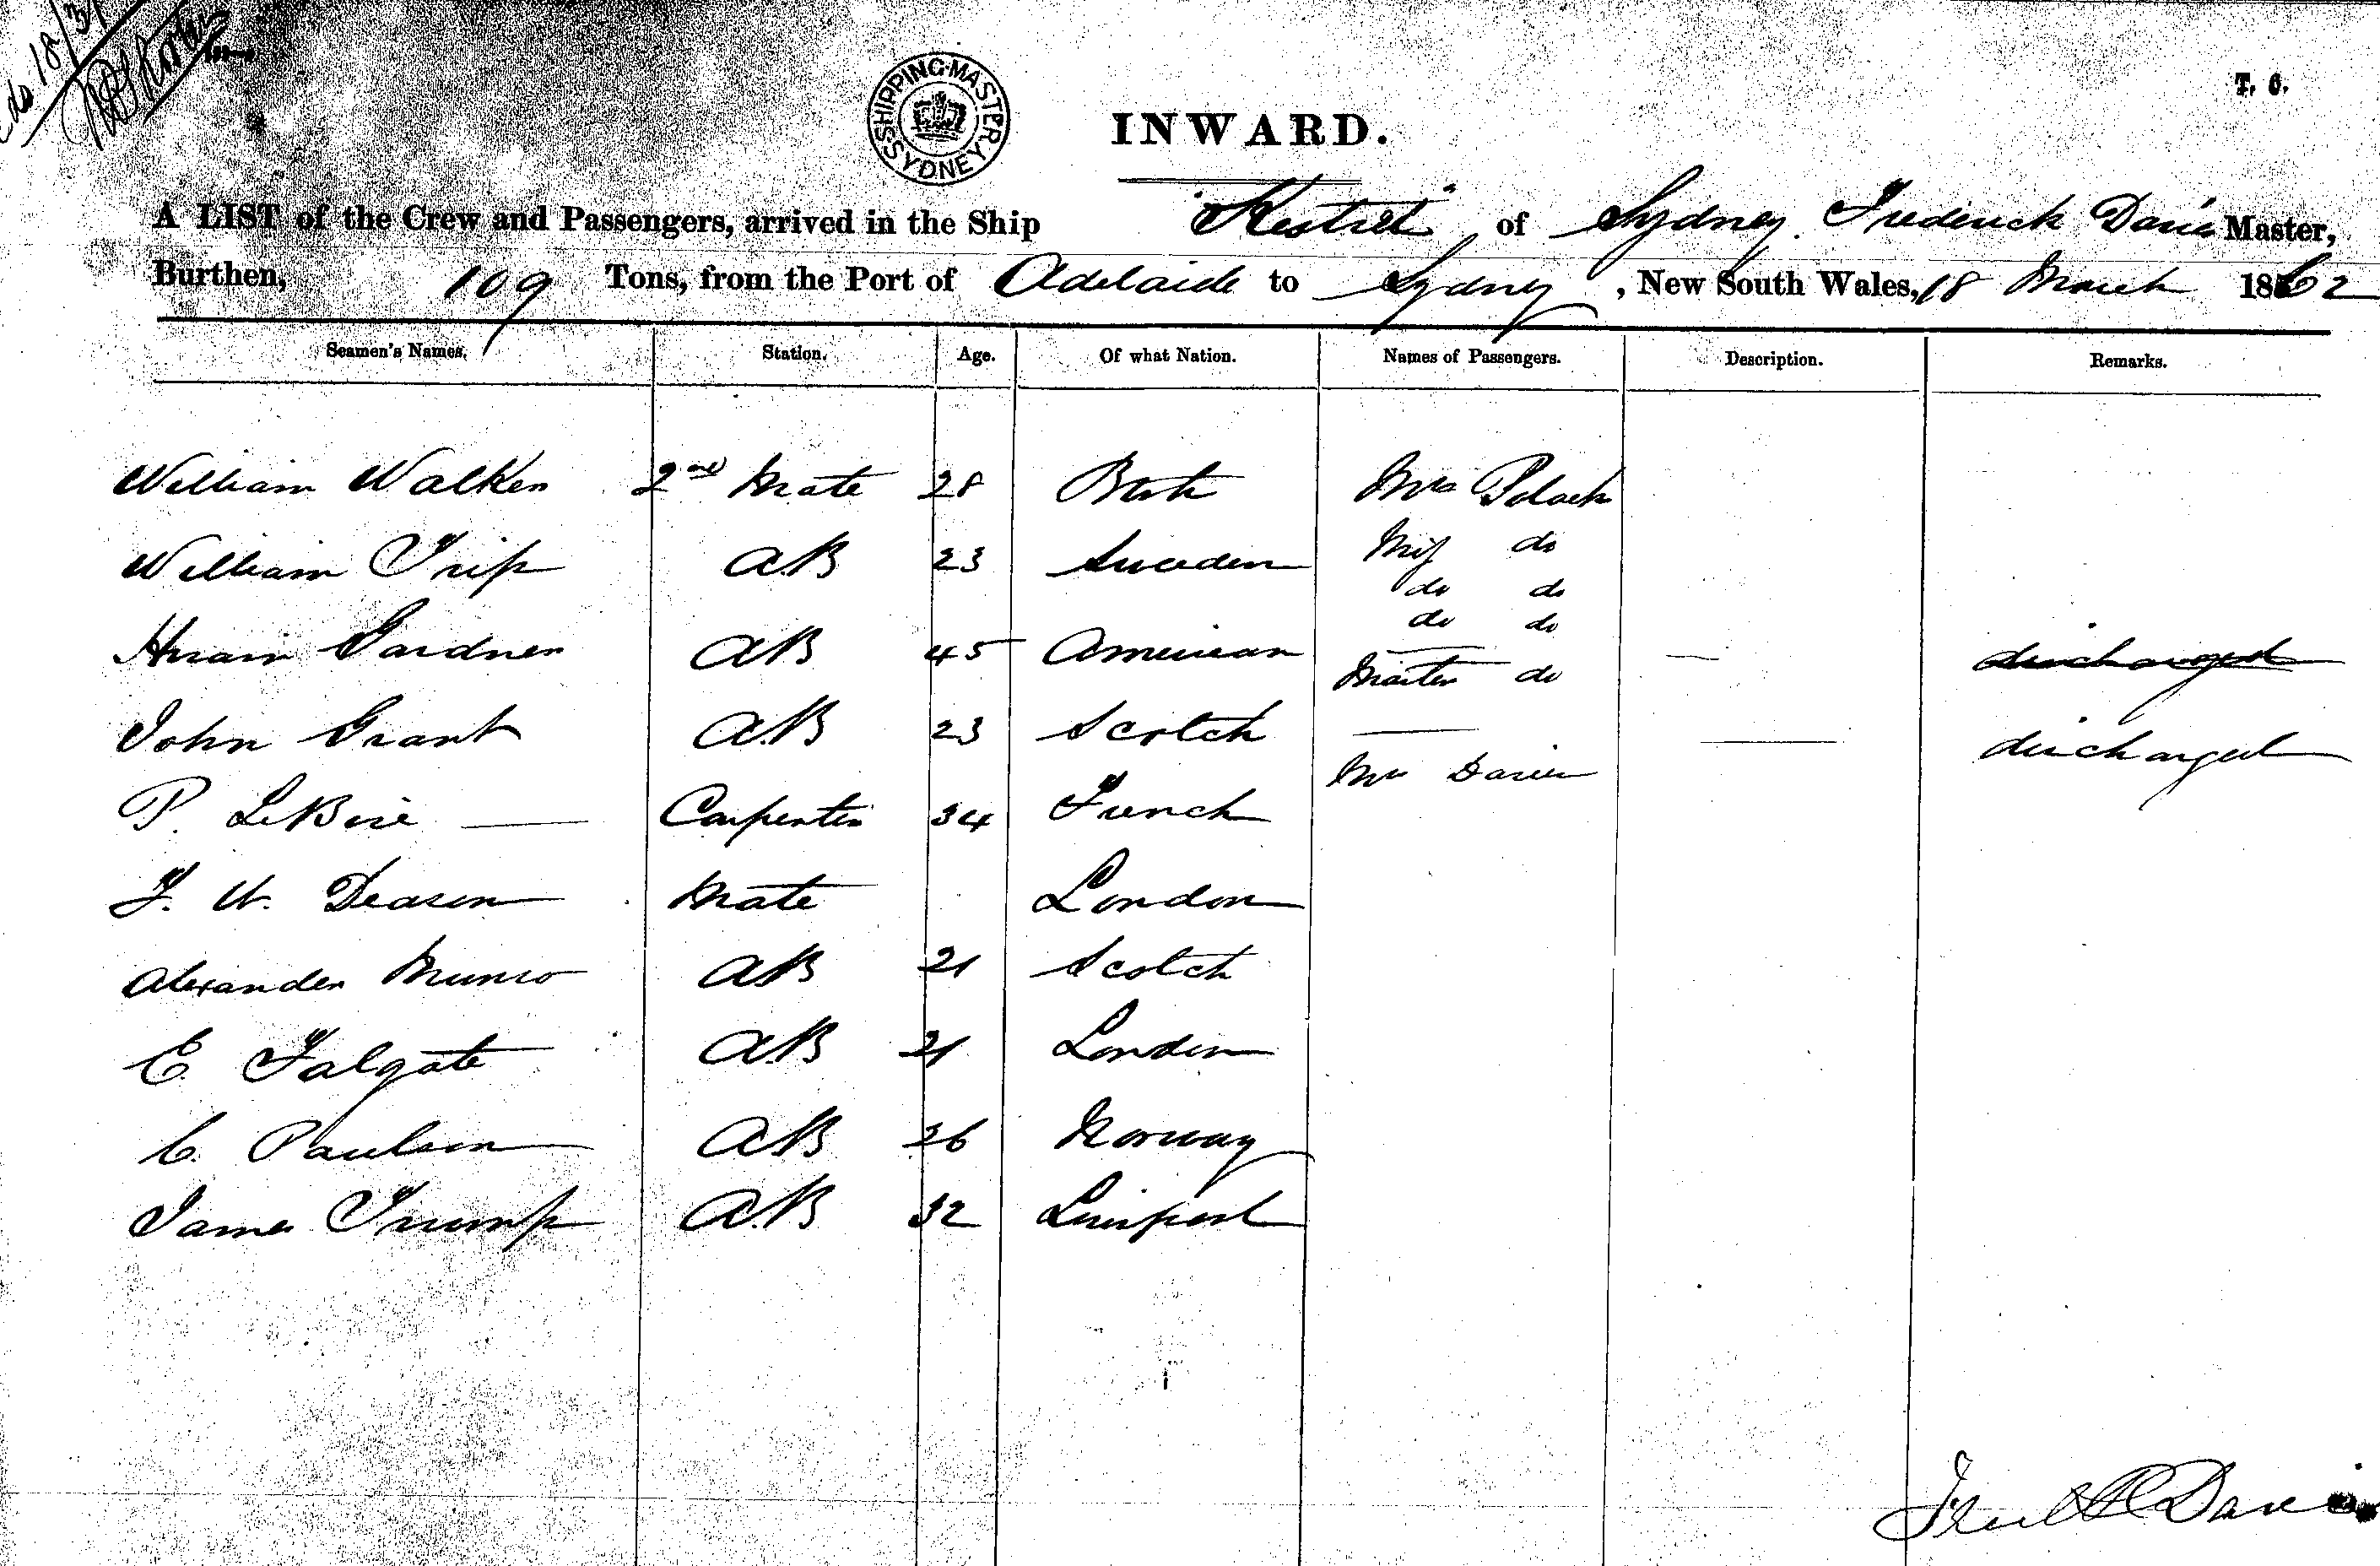 do 18/3/
SHIPPING MASTER SYDNEY
T. 6.
INWARD.
A LIST of the Crew and Passengers, arrived in the Ship "Kestrel" of Sydney. Frederick Davis Master,
Burthen, 109 Tons, from the Port of Adelaide to Sydney, New South Wales, 18 March 1862
Seamen's Names. Station. Age. Of what Nation. Names of Passengers. Description. Remarks.
William Walker 2nd Mate 28 Mrs Polack
William Trip AB 23 Sweden Miss do
do do
do do
Hiram Gardner AB 45 American — discharged
Master do
John Grant AB 23 Scotch — — discharged
Mrs Davis
P. LeBire — Carpenter 34 French
F. W. Deason Mate London
Alexander Munro AB 21 Scotch
E. Falgate AB 21 London
C. Paulsen AB 26 Norway
James Trump AB 32 Liverpool
Fred Davis